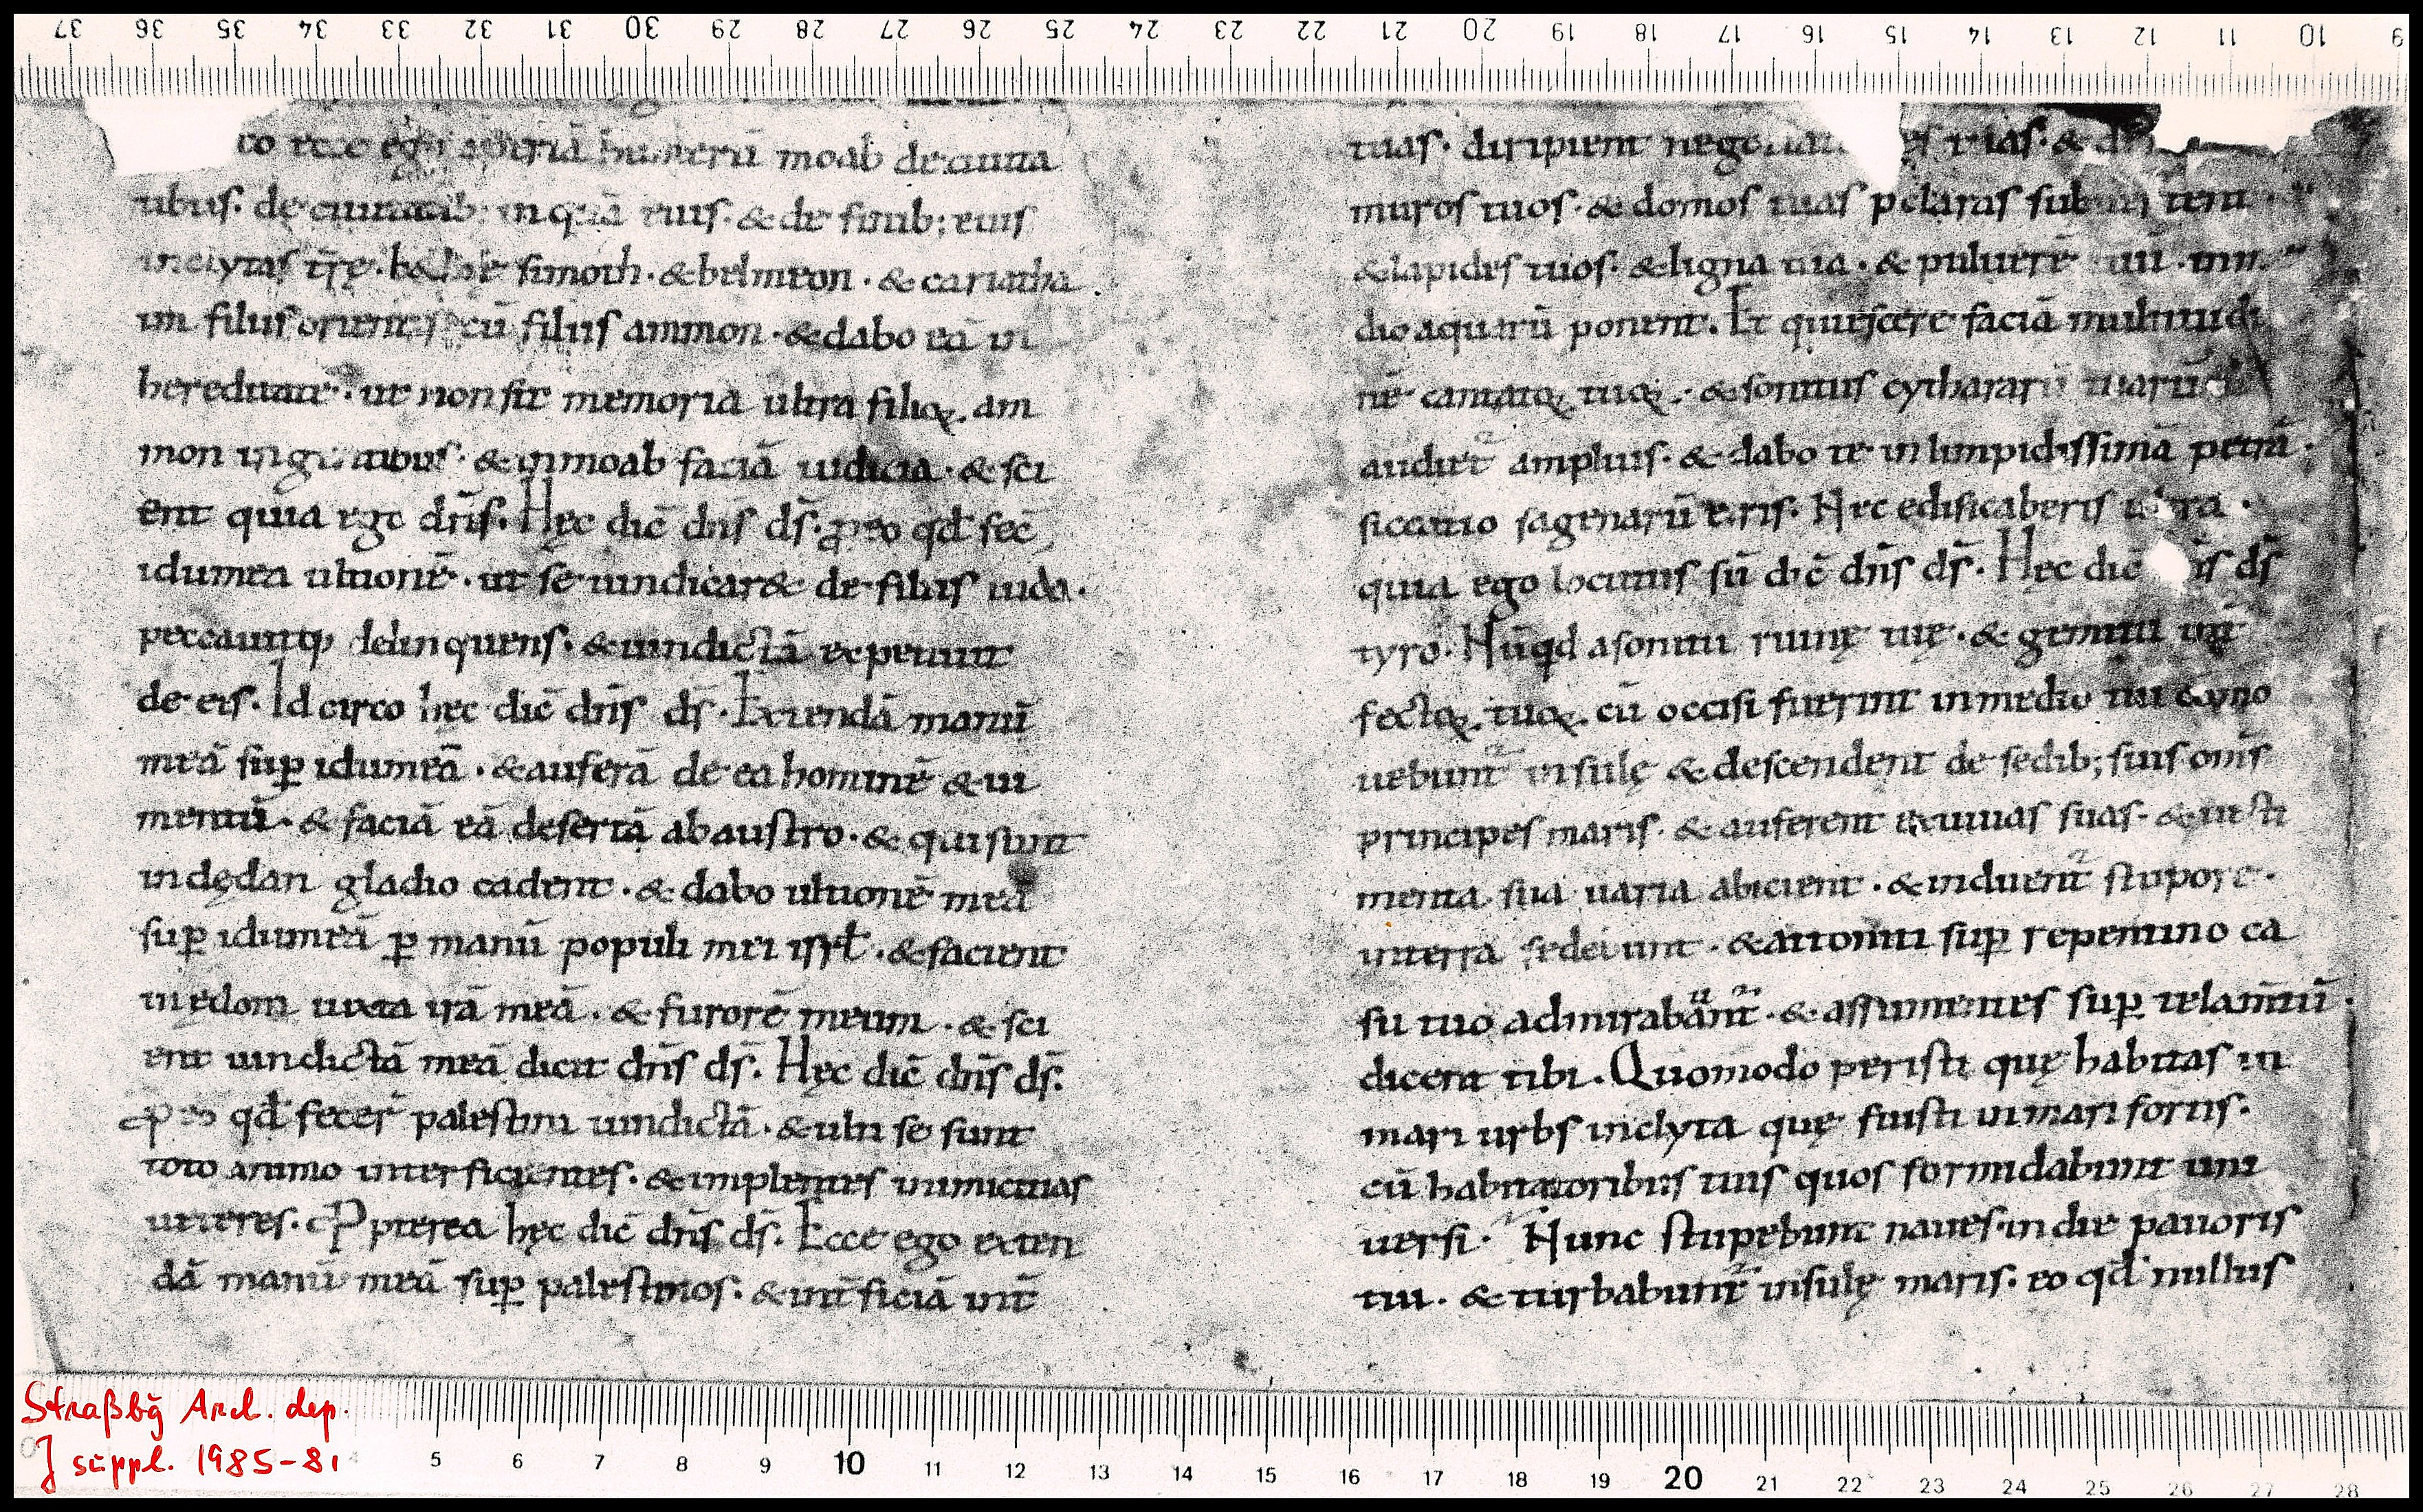 egō aperiā humerū moab deciuita
tibus. deciuitatib; inquā eius. & de finib; eius
inclytas trę. beth simoth. & belmeon. & cariatha
im filiis orientis cū filiis ammon. & dabo eā in
hereditatē. ut non sit memoria ultra filioꝝ am
mon in gentibus. & inmoab faciā iudicia. & sci
ent quia ego dn̄s. Hęc dic̄ dn̄s ds̄. ꝓ eo qđ fec̄
idumea ultionē. ut se uindicar& de filiis iuda.
peccauitq; delinquens. & uindictā expetiuit
de eis. Idcirco hęc dic̄ dn̄s ds̄. Extendā manū
meā suꝑ idumeā. & auferā de ea hominē & iu
mentū. & faciā eā desertā abaustro. & qui sunt
indędan gladio cadent. & dabo ultionē meā
suꝑ idumeā ꝑ manū populi mei isrł. & facient
inędom iuxta irā meā. & furorē meum. & sci
ent uindictā meā dicit dn̄s ds̄. Hęc dic̄ dn̄s ds̄.
ꝓ eo qđ fecer̄ palestini uindictā. & ulti se sunt
toto animo interficientes. & implentes inimicitias
ueteres. Ꝓpterea hęc dic̄ dn̄s ds̄. Ecce ego exten
dā manū meā suꝑ palestinos. & int̄ficiā int̄
tuas. diripient tuas. &
muros tuos. & domos tuas p̄claras subuertent.
& lapides tuos. & ligna tua. & puluerē tuū. inme
dio aquarū ponent. Et quiescere faciā multitudi
nē canticoꝝ tuoꝝ. & sonitus cythararū tuarū
audiet̄ amplius. & dabo te in limpidissimā petrā.
siccatio sagenarū eris. Nec edificaberis ultra.
quia ego locutus sū dic̄ dn̄s ds̄. Hęc dic̄ dn̄s ds̄
tyro. Nūqđ asonitu ruinę tuę. & gemitu int̄
fectoꝝ tuoꝝ cū occisi fuerint inmedio tui com̄o
uebunt̄ insulę & descendent de sedib; suis om̄s
principes maris. & auferent exuuias suas. & uesti
menta sua uaria abicient. & induent̄ stupore.
interra sedebunt. & attoniti suꝑ repentino ca
su tuo admirabūnt̄. & assumentes suꝑ te lam̄tū.
dicent tibi. Quomodo peristi quę habitas in
mari urbs inclyta quę fuisti in mari fortis.
cū habitatoribus tuis quos formidabunt uni
uersi. Nunc stupebunt naues. in die pauoris
tui. & turbabunt̄ insulę maris. eo qđ nullus
Straßbg Arch. dep.
J suppl. 1985-81